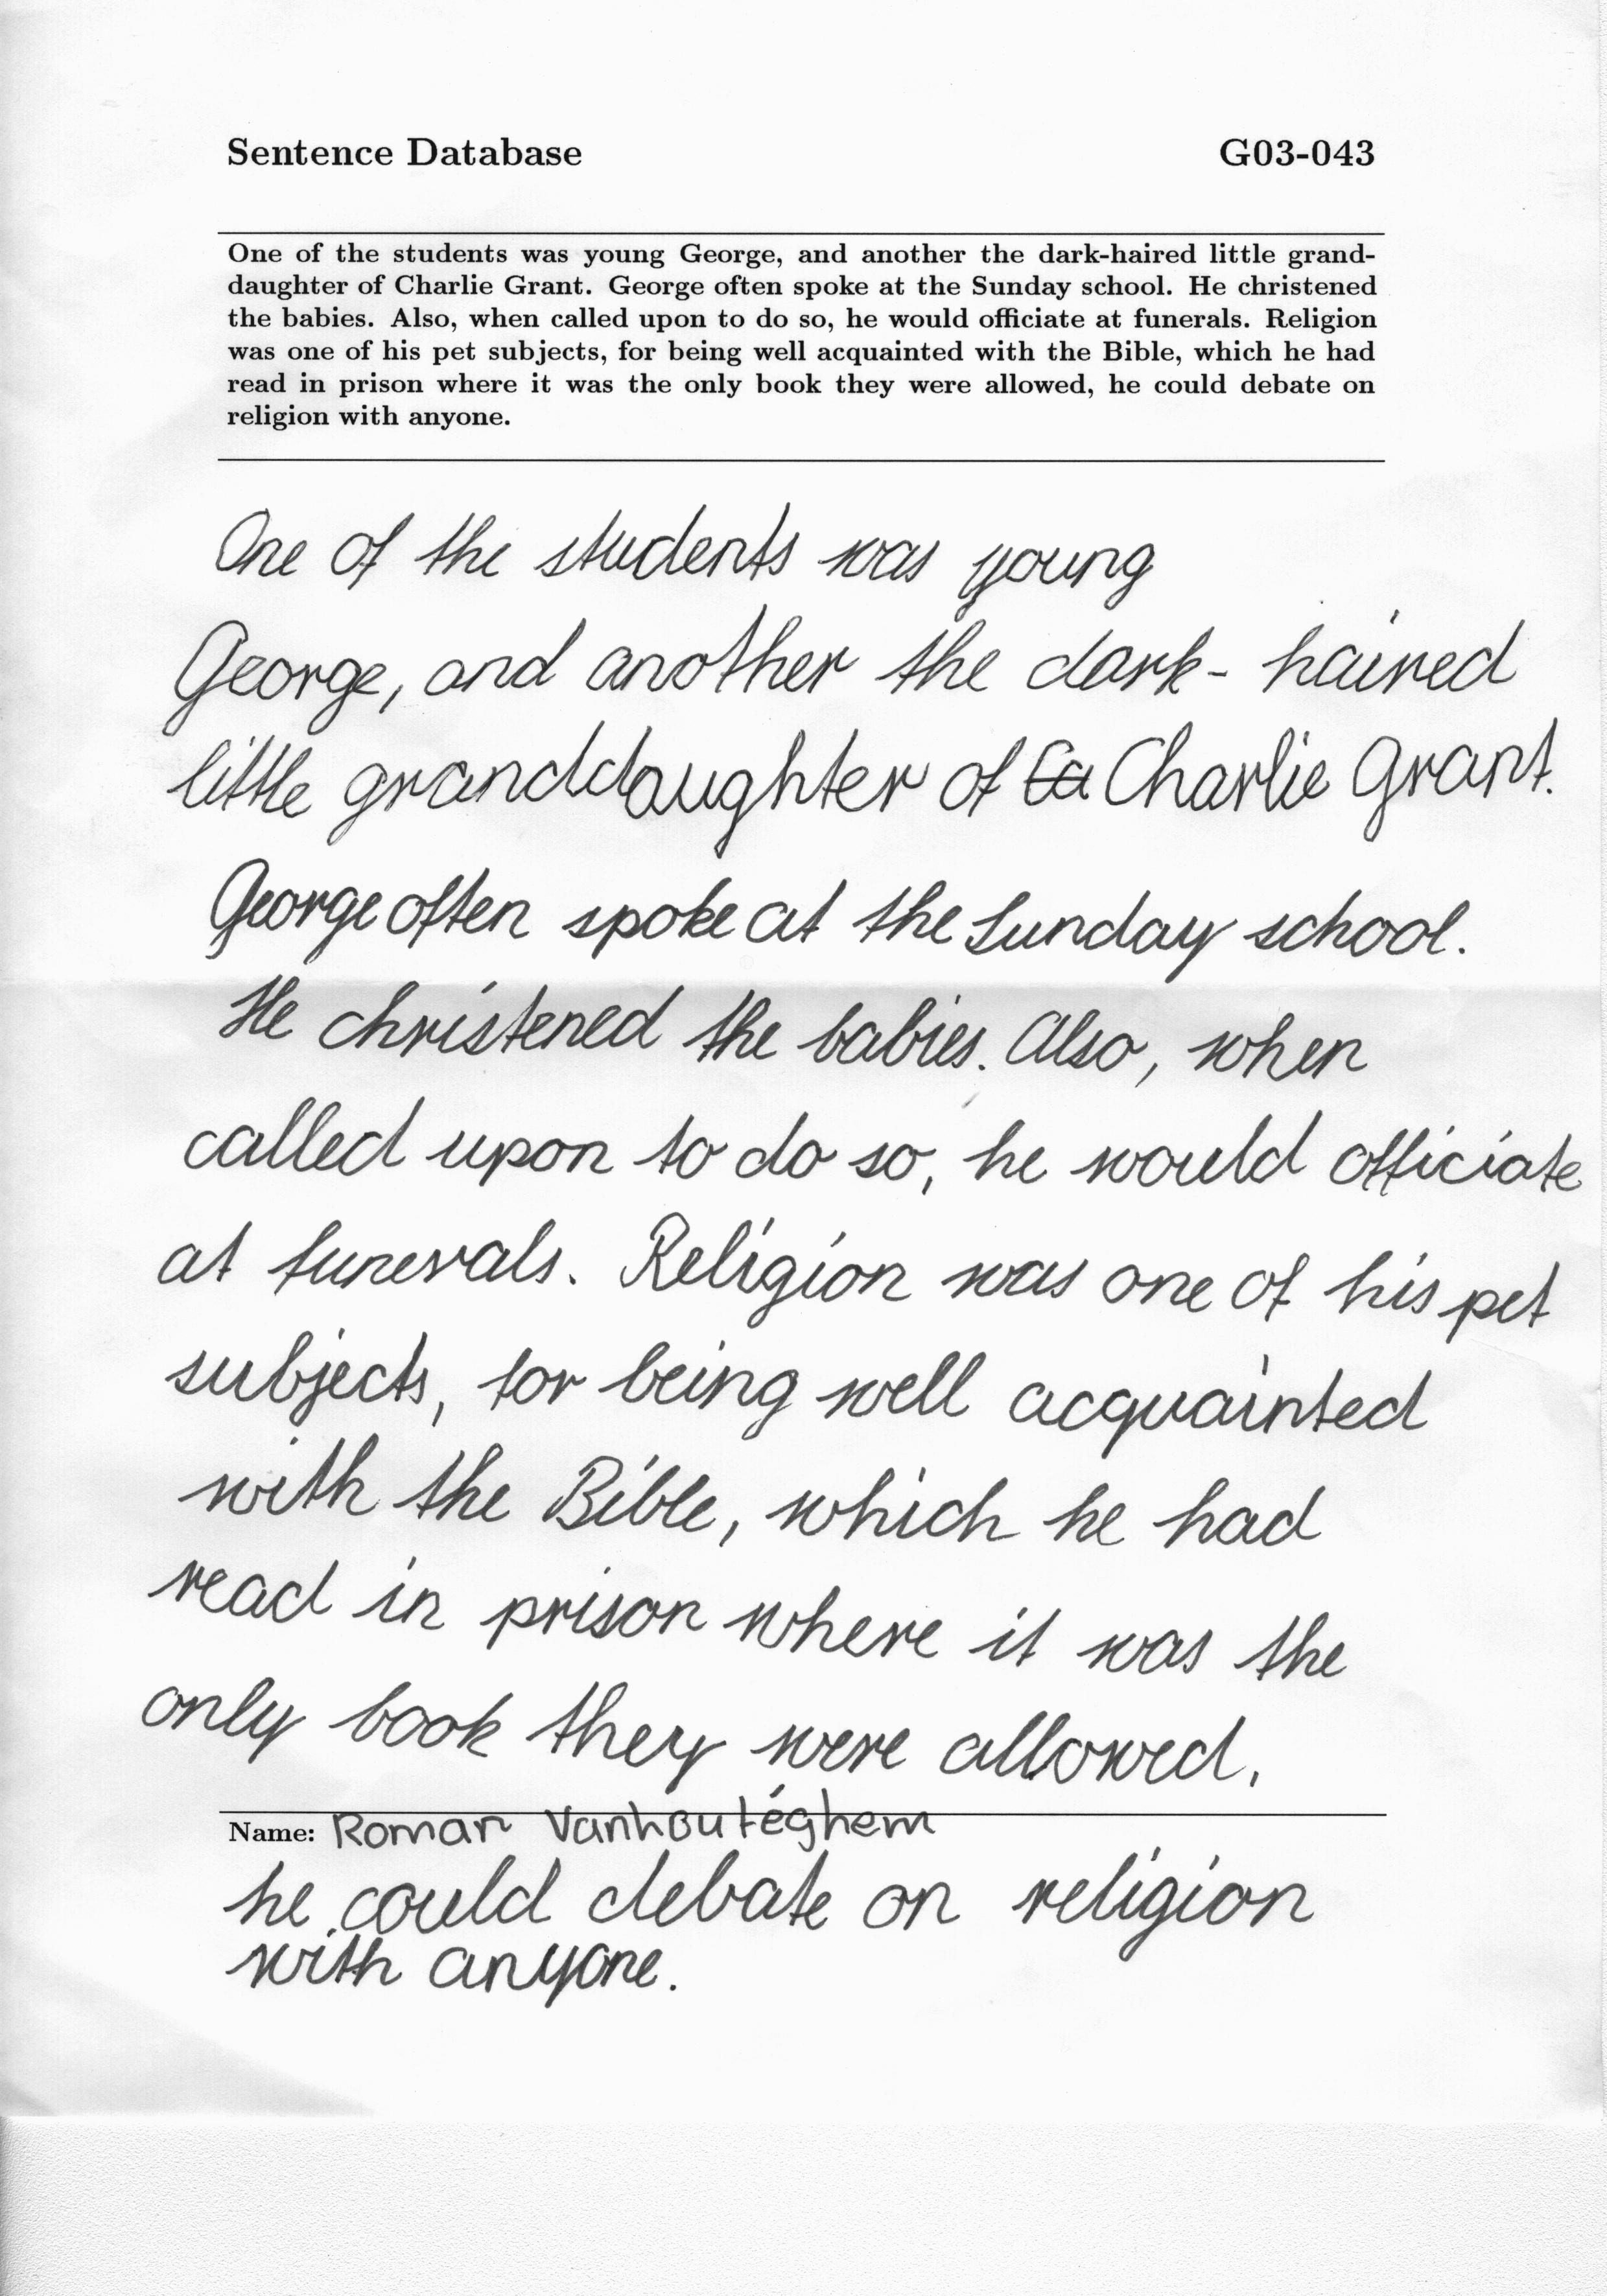 Sentence Database G03-043
One of the students was young George, and another the dark-haired little grand-
daughter of Charlie Grant. George often spoke at the Sunday school. He christened
the babies. Also, when called upon to do so, he would officiate at funerals. Religion
was one of his pet subjects, for being well acquainted with the Bible, which he had
read in prison where it was the only book they were allowed, he could debate on
religion with anyone.
One of the students was young
George, and another the dark- haired
little granddaughter of Charlie Grant.
George often spoke at the Sunday school.
He christened the babies. Also, when
called upon to do so, he would officiate
at funerals. Religion was one of his pet
subjects, for being well acquainted
with the Bible, which he had
read in prison where it was the
only book they were allowed,
Name: Roman Vanhoutéghem
he could debate on religion
with anyone.